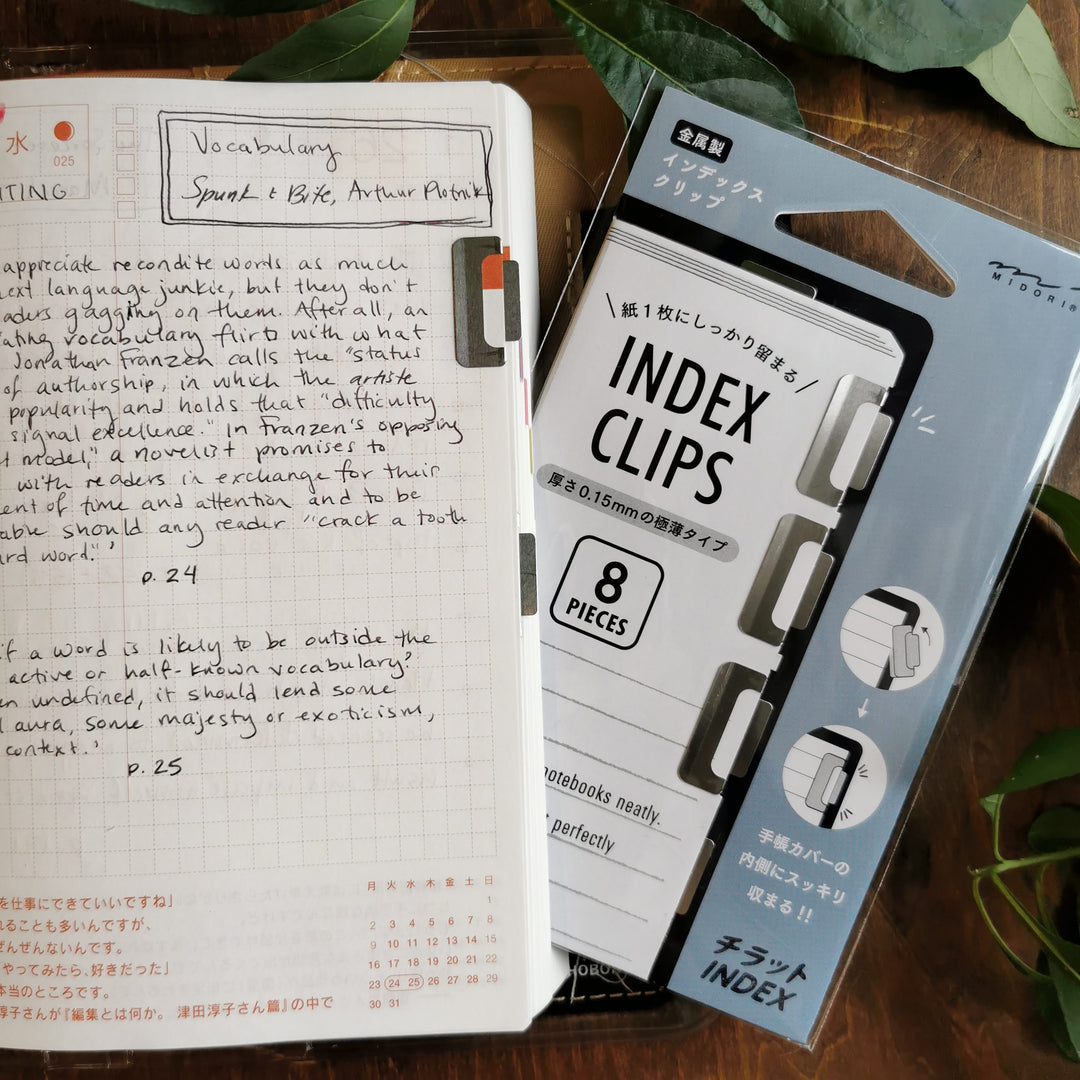 水
025
TING
Vocabulary
Spunk & Bite, Arthur Plotnik
appreciate recondite words as much
next language junkie, but they don't
aders gagging on them. After all, an
ating vocabulary flirts with what
Jonathan Franzen calls the "status
of authorship, in which the artiste
popularity and holds that "difficulty
signal excellence." In Franzen's opposing
model," a novelist promises to
with readers in exchange for their
ent of time and attention and to be
able should any reader "crack a tooth
ard word."'
p. 24
if a word is likely to be outside the
active or half-known vocabulary?
en undefined, it should lend some
aura, some majesty or exoticism,
context.'
p. 25
を仕事にできていいですね」
れることも多いんですが、
ぜんぜんないんです。
やってみたら、好きだった」
本当のところです。
淳子さんが『編集とは何か。 津田淳子さん篇』の中で
月 火 水 木 金 土 日
1
2 3 4 5 6 7 8
9 10 11 12 13 14 15
16 17 18 19 20 21 22
23 24 25 26 27 28 29
30 31
金属製
インデックス
クリップ
MIDORI®
紙1枚にしっかり留まる
INDEX
CLIPS
厚さ0.15mmの極薄タイプ
8
PIECES
notebooks neatly.
perfectly
手帳カバーの
内側にスッキリ
収まる!!
チラット
INDEX
HOBO